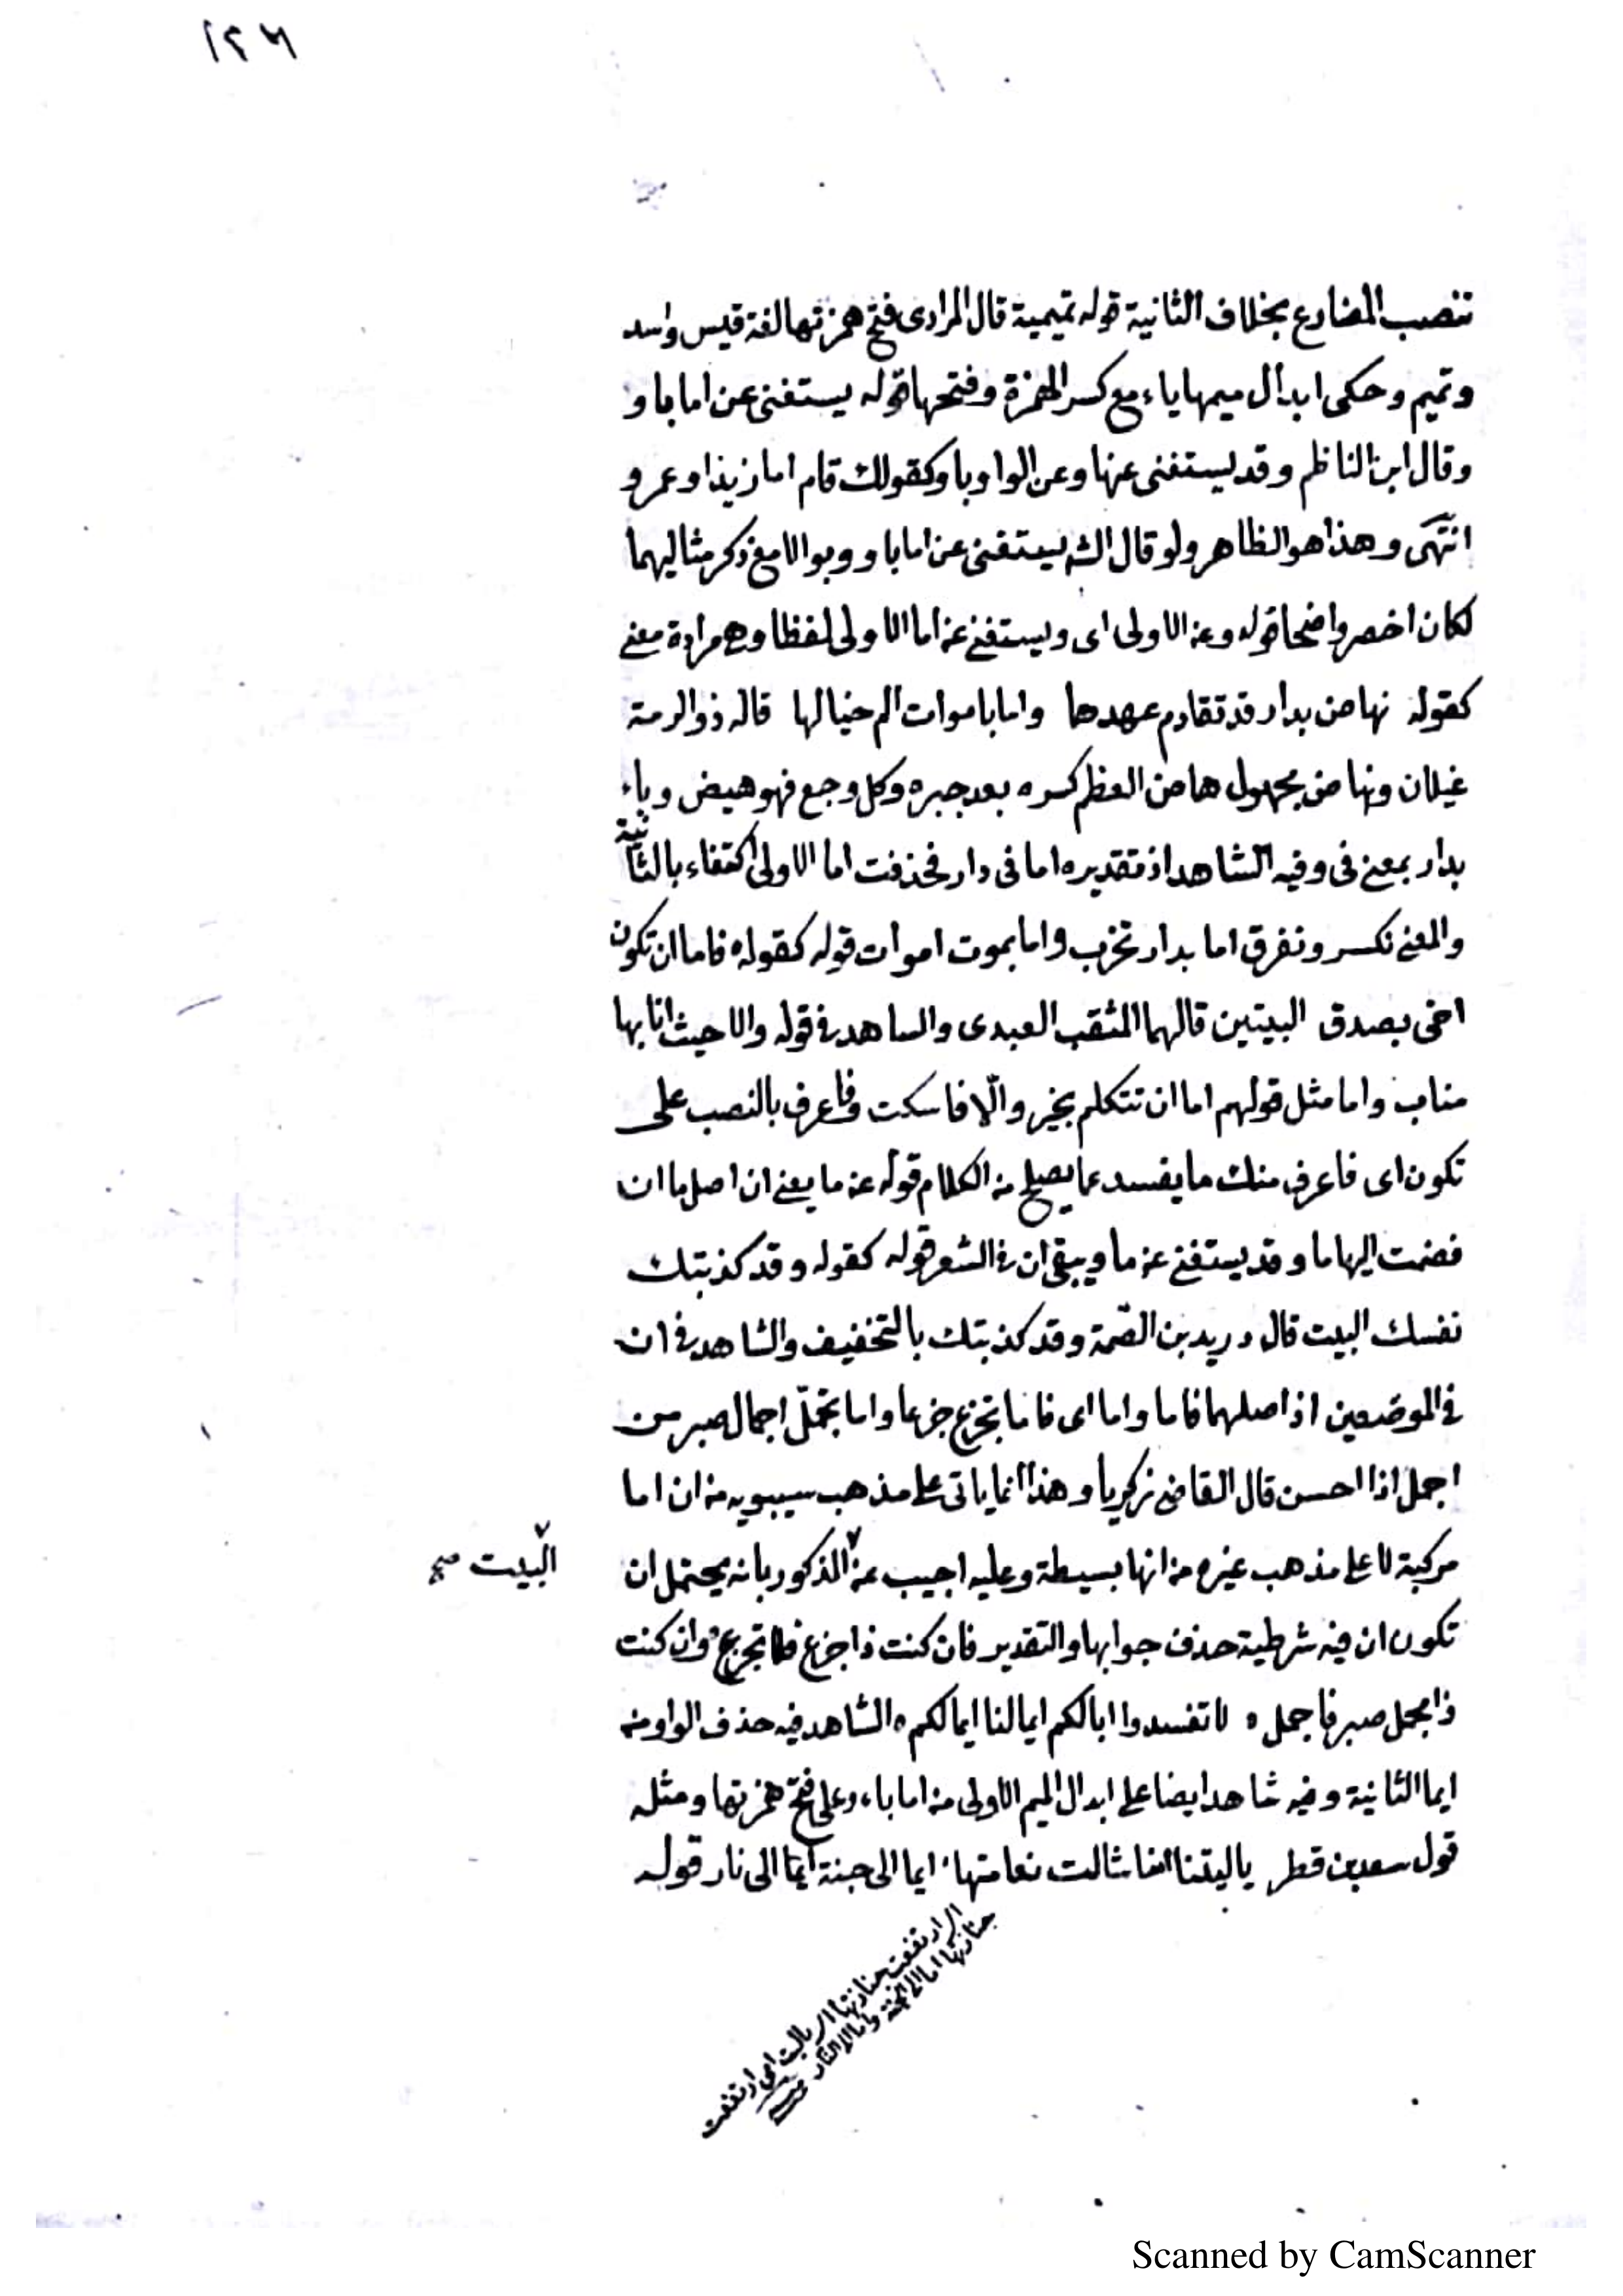 ١٢٦
تنصب المضارع بخلاف الثانية قوله تميمية قال المرادى فتح همزتها لغة قيس واسد
وتميم وحكى ابدال ميمها ياء مع كسر الهمزة وفتحها قوله يستغنى عن اما باو
وقال ابن الناظم وقد يستغنى عنها وعن الواو باو كقولك قام اما زيد او عمرو
انتهى وهذا هو الظاهر ولو قال الش يستغنى عن اما باو وبوالا مع ذكر مثاليهما
لكان اخصر واضحا قوله وعن الاولى اى ويستغنى عن اما الاولى لفظا وهى مرادة معنى
كقوله نهاض بدار قد تقادم عهدها واما باموات الم خيالها قاله ذو الرمة
غيلان ونهاض مجهول هاض العظم كسره بعد جبره وكل وجع فهو هيض وباء
بدار بمعنى فى وفيه الشاهد اذ تقديره اما فى دار فحذفت اما الاولى اكتفاء بالثانية
والمعنى نكسر ونفرق اما بدار تخرب واما بموت اموات قوله كقوله فاما ان تكون
اخى بصدق البيتين قالهما المثقب العبدى والساهد فى قوله والا حيث انابها
مناب واما مثل قولهم اما ان تتكلم بخير والّا فاسكت وفاعرف بالنصب على
تكون اى فاعرف منك ما يفسد عما يصلح من الكلام قوله عن ما يعنى ان اصل ما ان
فضمت اليها ما وقد يستغنى عن ما ويبقى ان فى الشعر قوله كقوله وقد كذبتك
نفسك البيت قال دريد بن الصّمة وقد كذبتك بالتخفيف والشاهد فى ان
فى الموضعين اذ اصلهما فاما واما اى فاما تجزع جزعا واما تجمّل اجمال صبر من
اجمل اذا احسن قال القاضى زكريا وهذا انما ياتى على مذهب سيبويه من ان اما
مركبة لا على مذهب غيره من انها بسيطة وعليه اجيب عن المذكور بانه يحتمل ان
البيت صح
تكون ان فيه شرطية حذف جوابها والتقدير فان كنت ذا جزع فلا تجزع وان كنت
ذا مجمل صبر فاجمل ه لا تفسدوا ابالكم ايما لنا ايما لكم ه الشاهد فيه حذف الواو من
ايما الثانية وفيه شاهد ايضا على ابدال الميم الاولى من اما ياء وعلى فتح همزتها ومثله
قول سعد بن قطر ياليتنا امنا شالت نعامتها ايما الى جنة ايما الى نار قوله
ارتفعت جنازتها ياليت امى ارتفعت
جنازتها اما الى الجنة واما الى النار
Scanned by CamScanner